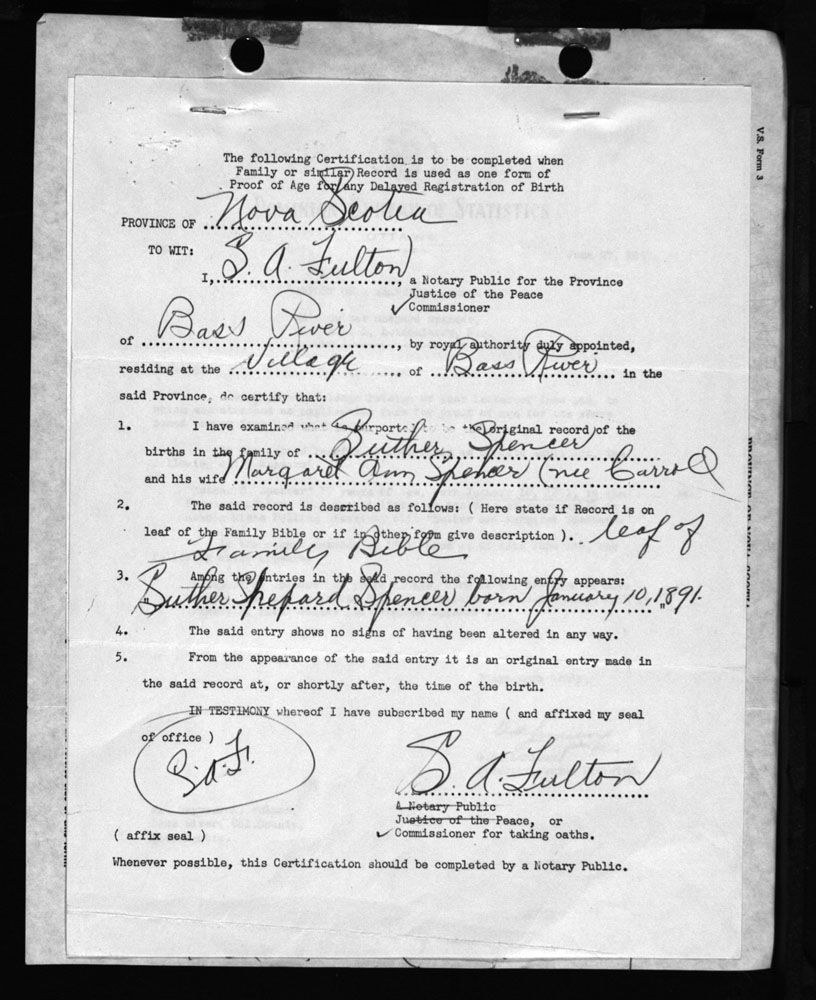 The following Certification is to be completed when
Family or similar Record is used as one form of
Proof of Age for any Delayed Registration of Birth
V.S. Form 3
STATISTICS
PROVINCE OF Nova Scotia
TO WIT:
I, S. A. Fulton, a Notary Public for the Province
Justice of the Peace
✓Commissioner
of Bass River, by royal authority duly appointed,
residing at the Village of Bass River in the
said Province, do certify that:
1. I have examined what is purported to be the original record of the
births in the family of Suther Spencer
and his wife Margaret Ann Spencer (nee Carroll
2. The said record is described as follows: ( Here state if Record is on
leaf of the Family Bible or if in other form give description ). leaf of
Family Bible
3. Among the entries in the said record the following entry appears:
"Suther Shepard Spencer born January 10, 1891.
4. The said entry shows no signs of having been altered in any way.
5. From the appearance of the said entry it is an original entry made in
the said record at, or shortly after, the time of the birth.
IN TESTIMONY whereof I have subscribed my name ( and affixed my seal
of office )
S.A.F.
S. A. Fulton
A Notary Public
Justice of the Peace, or
( affix seal ) ✓Commissioner for taking oaths.
Whenever possible, this Certification should be completed by a Notary Public.